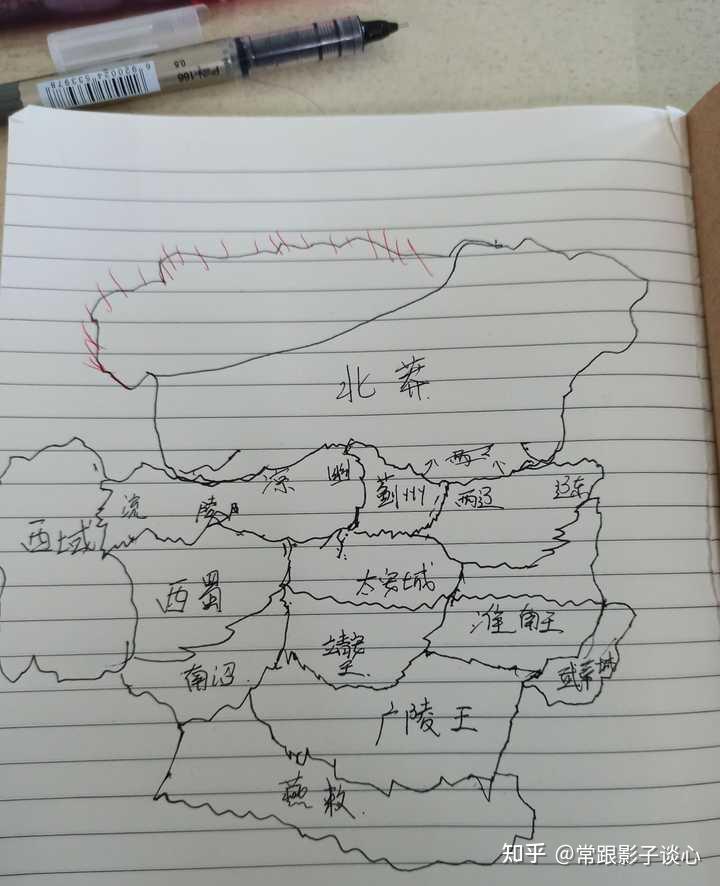 6920024533978
0.5
北莽
西域
流
陵
凉
幽
蓟州
两
两辽
辽东
西蜀
太安城
淮南王
靖安王
南诏
武帝城
广陵王
燕敕
知乎 @常跟影子谈心